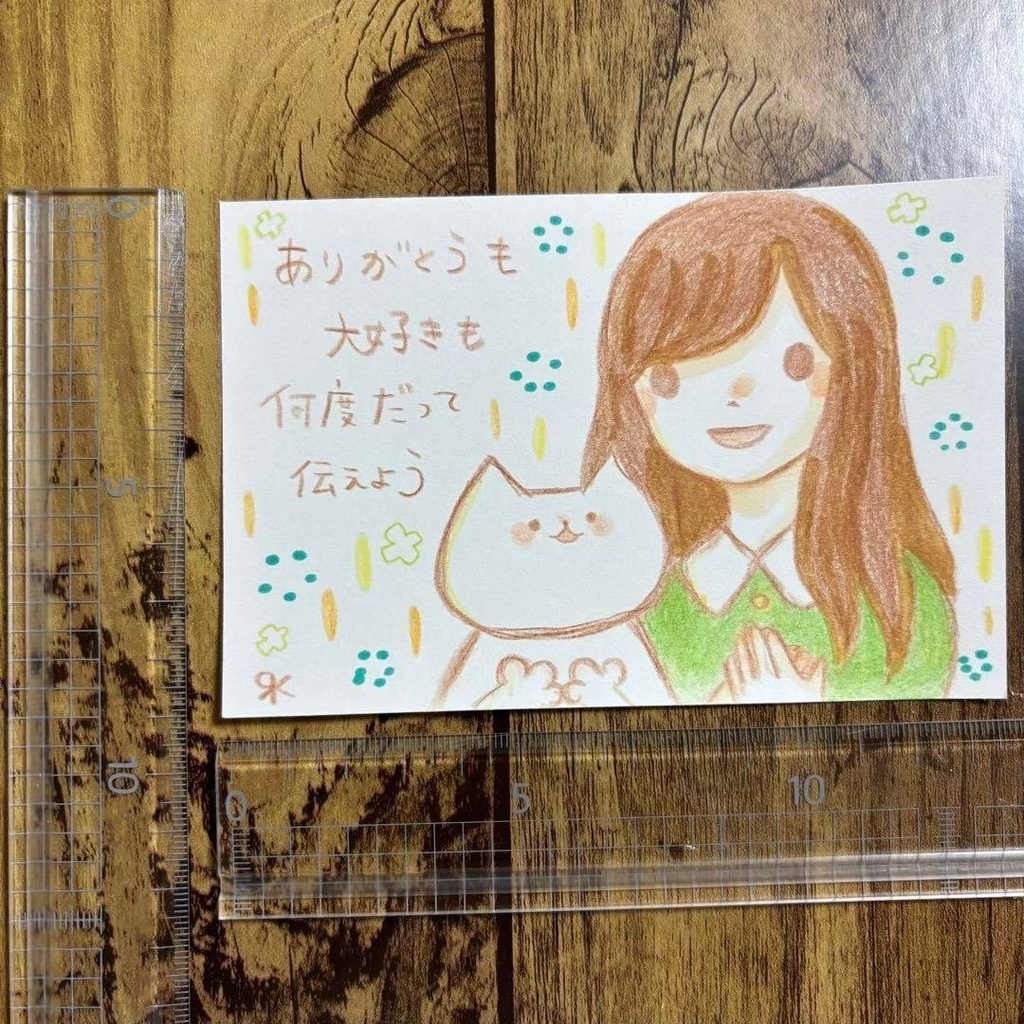 ありがとうも
大好きも
何度だって
伝えよう
0
5
10
0
5
10